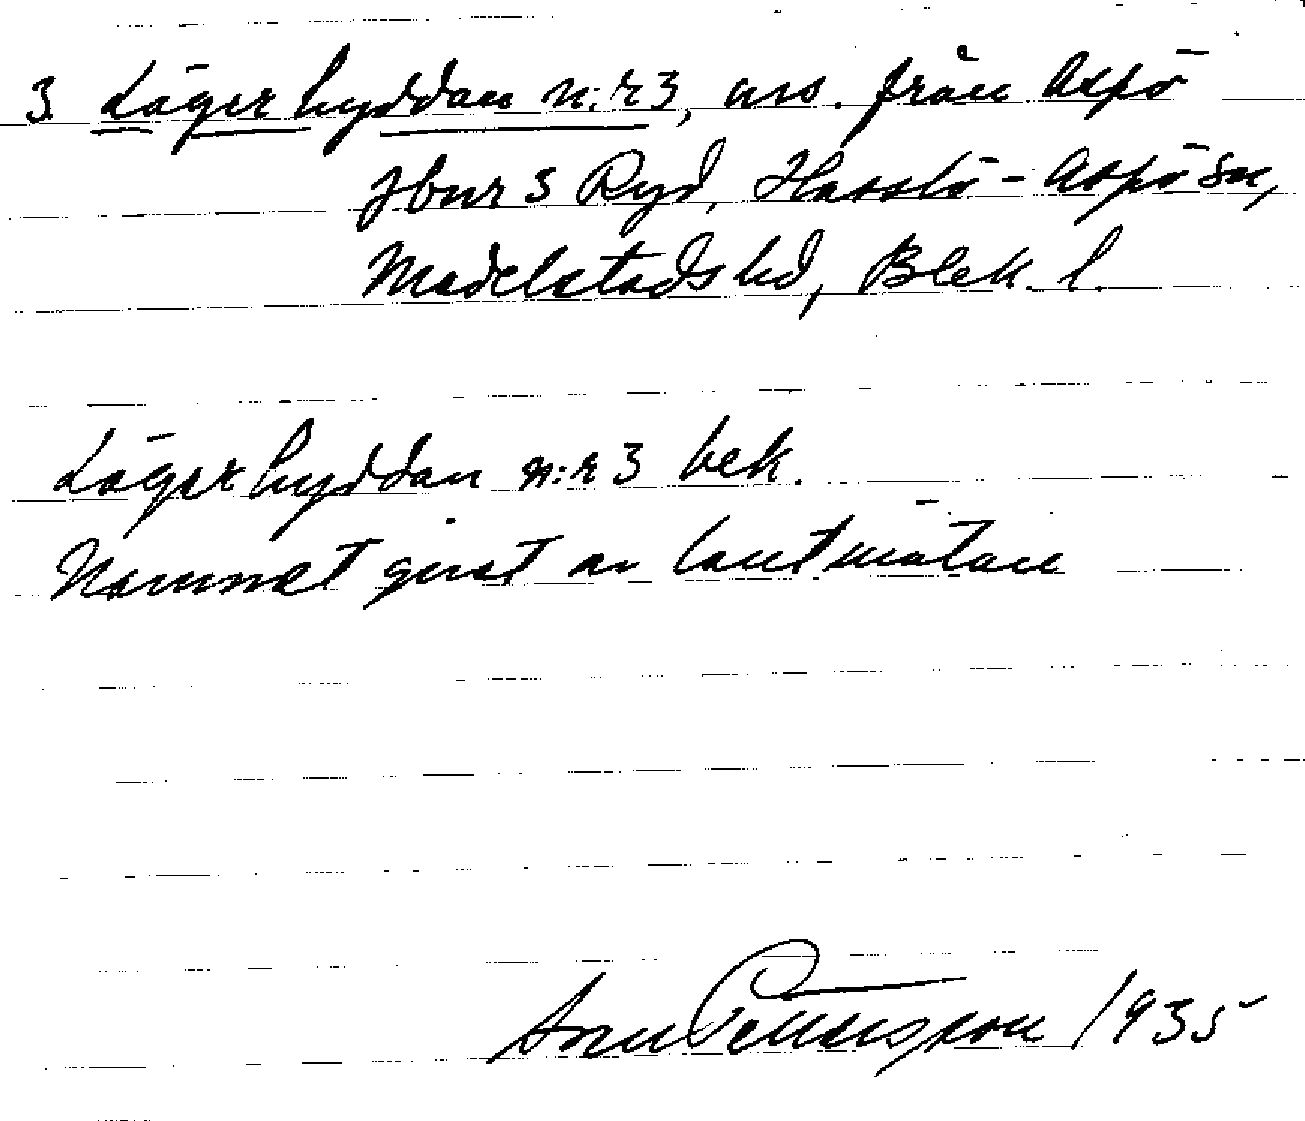 3. Lägerhyddan n:r 3, avs. från Aspö
Jbnr 3 Ryd, Hasslö-Aspö sn,
Medelstads hd, Blek. l.
Lägerhyddan n:r 3 bek.
Namnet givet av lantmätare
Pettersson 1935